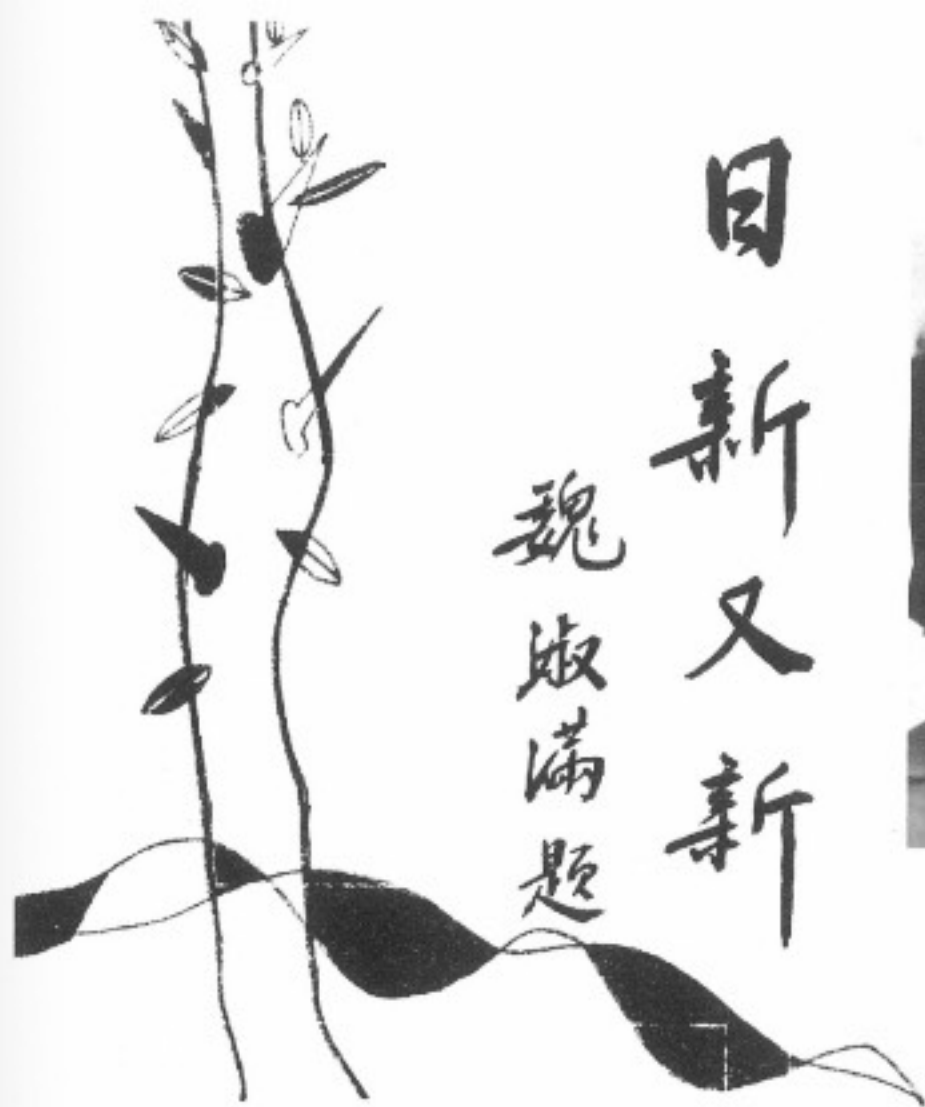 日新又新
魏淑滿題